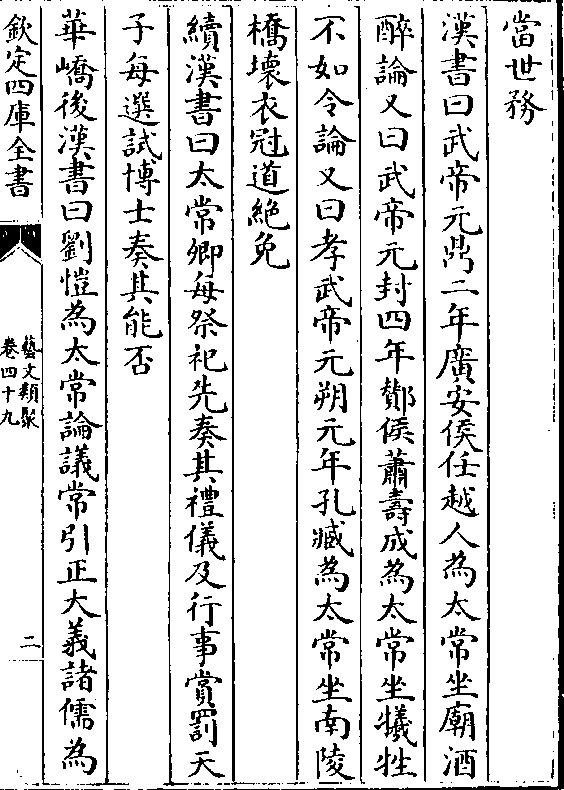 當世務
漢書曰武帝元鼎二年廣安侯任越人為太常坐廟酒
醉論又曰武帝元封四年酇侯蕭壽成為太常坐犧牲
不如令論又曰孝武帝元朔元年孔臧為太常坐南陵
橋壞衣冠道絶免
續漢書曰太常卿每祭祀先奏其禮儀及行事賞罰天
子每選試博士奏其能否
華嶠後漢書曰劉愷為太常論議常引正大義諸儒為
欽定四庫全書
藝文類聚
卷四十九
二